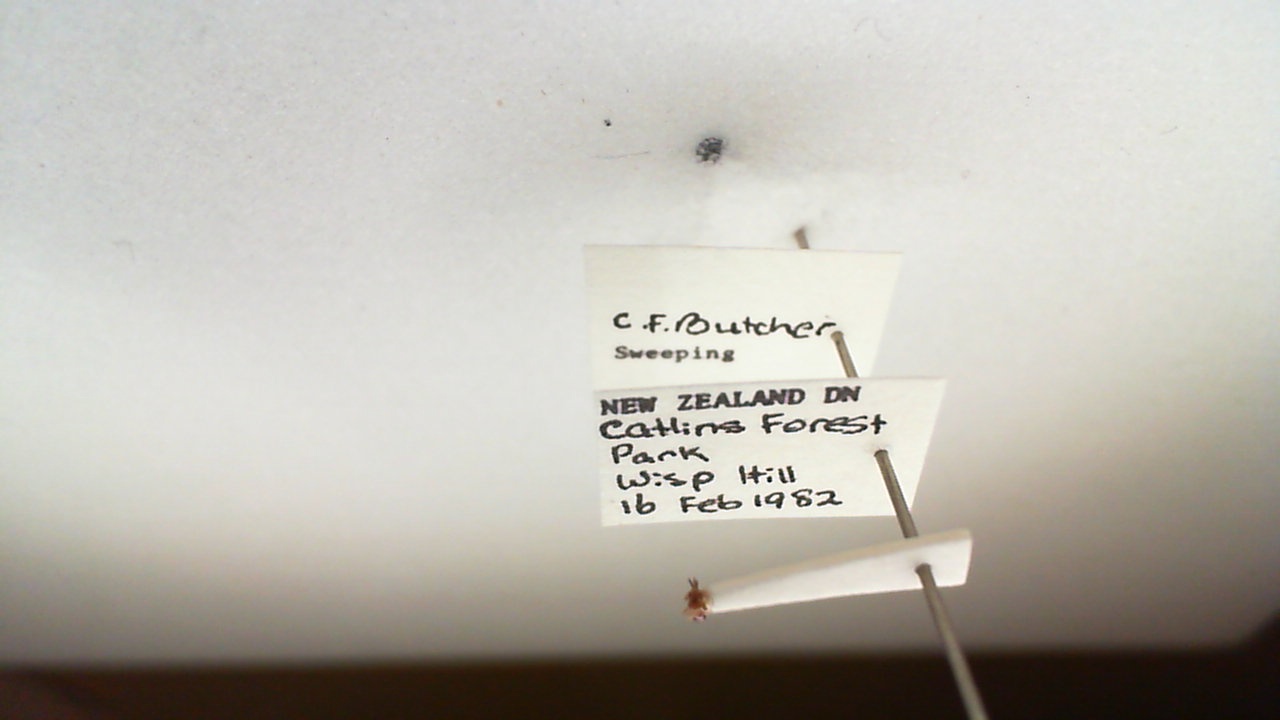 C.F.Butcher
Sweeping
NEW ZEALAND DN
Catlins Forest
Park
Wisp Hill
16 Feb 1982